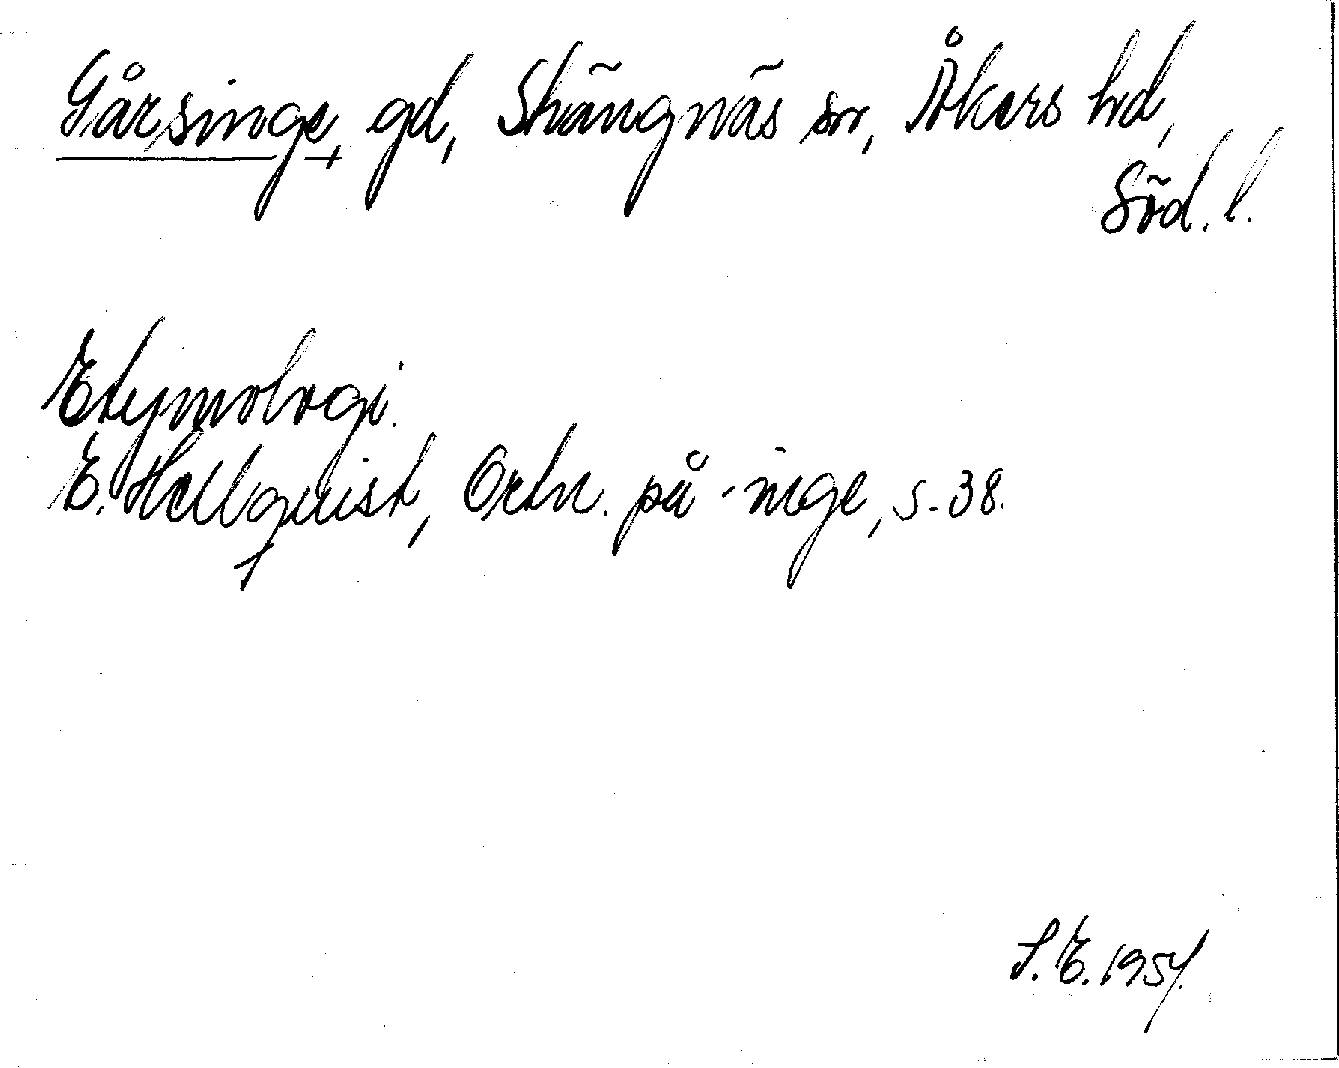 Gårsinge, gd, Stängnäs sn, Åkers hd,
Söd. l.
Etymologi.
E. Hellquist, Ortn. på -inge, s. 38.
S. E. 1954.